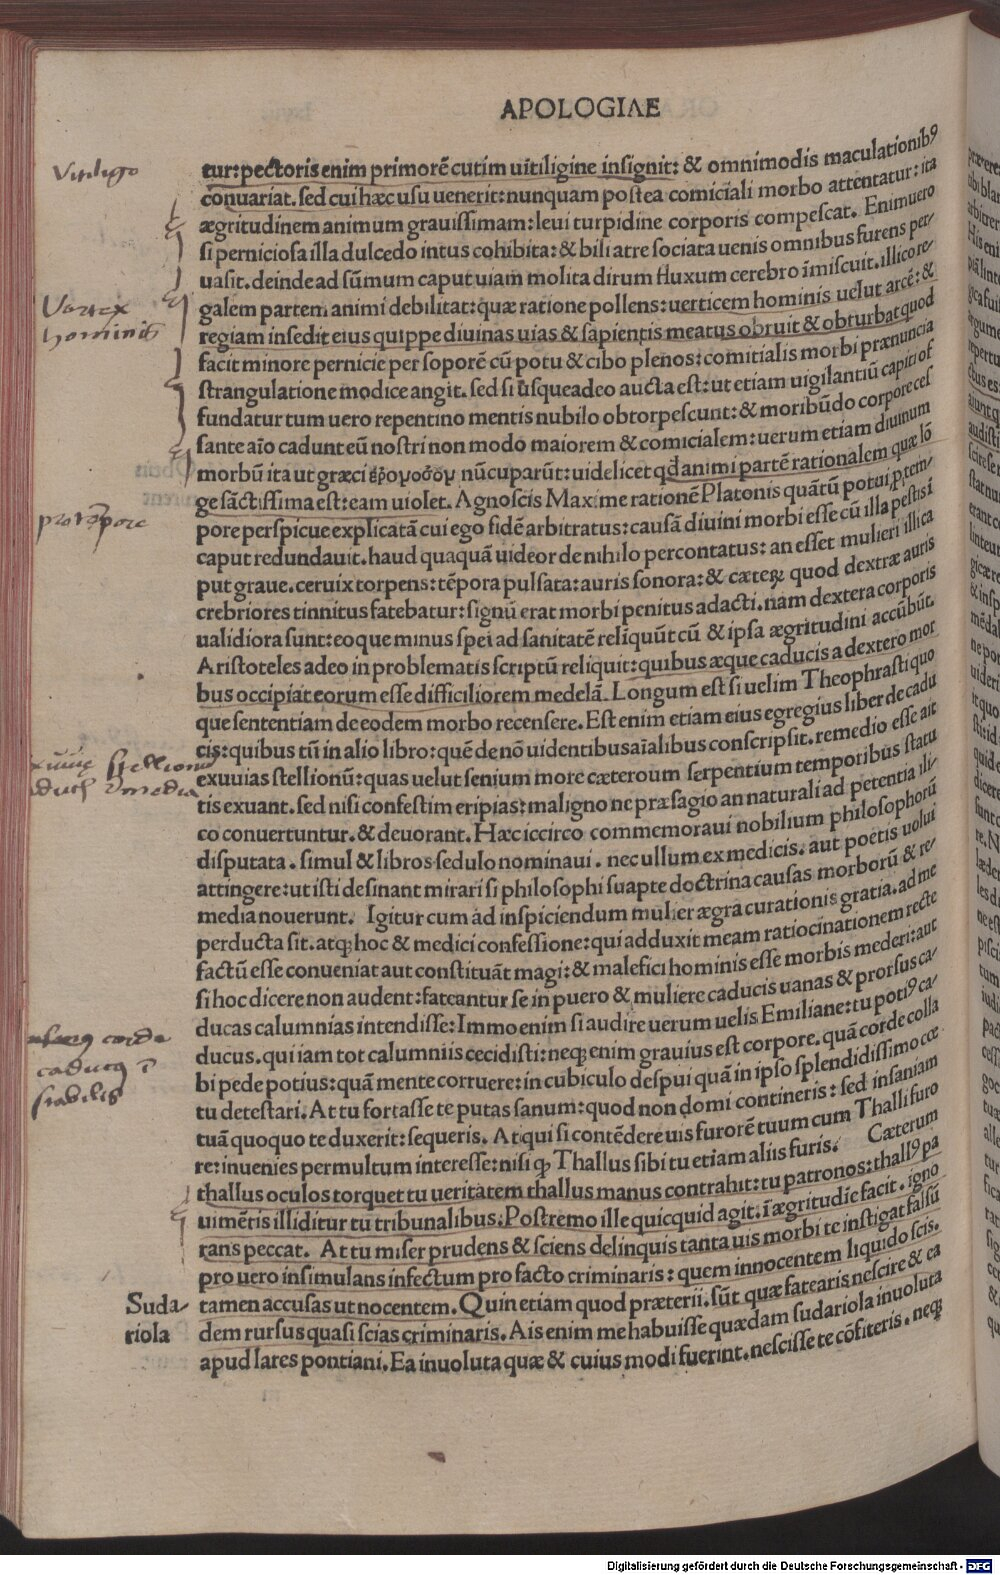 APOLOGIAE
Vitiligo
tur: pectoris enim primorē cutim uitiligine insignit: & omnimodis maculationibꝰ
conuariat. sed cui hæc usu uenerit: nunquam postea comiciali morbo attentatur: ita
ægritudinem animum grauissimam: leui turpidine corporis compescat. Enimuero
si perniciosa illa dulcedo intus cohibita: & bili atre sociata uenis omnibus furens per-
uasit. deinde ad sūmum caput uiam molita dirum fluxum cerebro īmiscuit. illico re-
Vertex
hominis
galem partem animi debilitat: quæ ratione pollens: uerticem hominis uelut arcē: &
regiam insedit eius quippe diuinas uias & sapientis meatus obruit & obturbat quod
facit minore pernicie per soporē cū potu & cibo plenos: comitialis morbi prænuncia
strangulatione modice angit. sed si usqueadeo aucta est: ut etiam uigilantiū capiti of
fundatur tum uero repentino mentis nubilo obtorpescunt: & moribūdo corpore ces
sante aīo cadunt eū nostri non modo maiorem & comicialem: uerum etiam diuinum
morbū ita ut græci ερονοσον nūcuparūt: uidelicet qđ animi partē rationalem quæ lō
ge sāctissima est: eam uiolet. Agnoscis Maxime rationē Platonis quātū potui, p, tem-
pore perspicue explicatā cui ego fidē arbitratus: causā diuini morbi esse cū illa pestis ī
caput redundauit. haud quaquā uideor de nihilo percontatus: an esset mulieri illi ca
put graue. ceruix torpens: tēpora pulsata: auris sonora: & cæteꝝ quod dextræ auris
crebriores tinnitus fatebatur: signū erat morbi penitus adacti. nam dextera corporis
ualidiora sunt: eoque minus spei ad sanitatē reliquūt cū & ipsa ægritudini accūbūt.
Aristoteles adeo in problematis scriptū reliquit: quibus æque caducis a dextero mor
bus occipiat eorum esse difficiliorem medelā. Longum est si uelim Theophrasti quo
que sententiam de eodem morbo recensere. Est enim etiam eius egregius liber de cadu
cis: quibus tū in alio libro: quē de nō uidentibus aīalibus conscripsit. remedio esse ait
exuuias stellionū: quas uelut senium more cæteroum serpentium temporibus statu
tis exuant. sed nisi confestim eripias: maligno ne præsagio an naturali ad petentia ili-
co conuertuntur. & deuorant. Hæc iccirco commemoraui nobilium philosophorū
disputata. simul & libros sedulo nominaui. nec ullum ex medicis. aut poetis uolui
attingere: ut isti desinant mirari si philosophi suapte doctrina causas morborū & re-
media nouerunt. Igitur cum ad inspiciendum mulier ægra curationis gratia. ad me
perducta sit. atqꝫ hoc & medici confessione: qui adduxit meam ratiocinationem recte
factū esse conueniat aut constituāt magi: & malefici hominis esse morbis mederi: aut
si hoc dicere non audent: fateantur se in puero & muliere caducis uanas & prorsus ca-
ducas calumnias intendisse: Immo enim si audire uerum uelis Emiliane: tu potiꝰ ca-
caducꝰ ī
ducus. qui iam tot calumniis cecidisti: neqꝫ enim grauius est corpore. quā corde colla
bi pede potius: quā mente corruere: in cubiculo despui quā in ipso splendidissimo cœ
tu detestari. At tu fortasse te putas sanum: quod non domi contineris: sed insaniam
tuā quoquo te duxerit: sequeris. Atqui si contēdere uis furorē tuum cum Thalli furo
re: inuenies permultum interesse: nisi ꝙ Thallus sibi tu etiam aliis furis. Cæterum
thallus oculos torquet tu ueritatem thallus manus contrahit: tu patronos: thallꝰ pa
uimētis illiditur tu tribunalibus. Postremo ille quicquid agit. ī ægritudīe facit. igno
rans peccat. At tu miser prudens & sciens delinquis tanta uis morbi te instigat falsū
pro uero insimulans infectum pro facto criminaris: quem innocentem liquido scis.
Suda-
riola
tamen accusas ut nocentem. Quin etiam quod præterii. sūt quæ fatearis nescire & ea
dem rursus quasi scias criminaris. Ais enim me habuisse quædam sudariola inuoluta
apud lares pontiani. Ea inuoluta quæ & cuius modi fuerint. nescisse te cōfiteris. neqꝫ
Digitalisierung gefördert durch die Deutsche Forschungsgemeinschaft - DFG